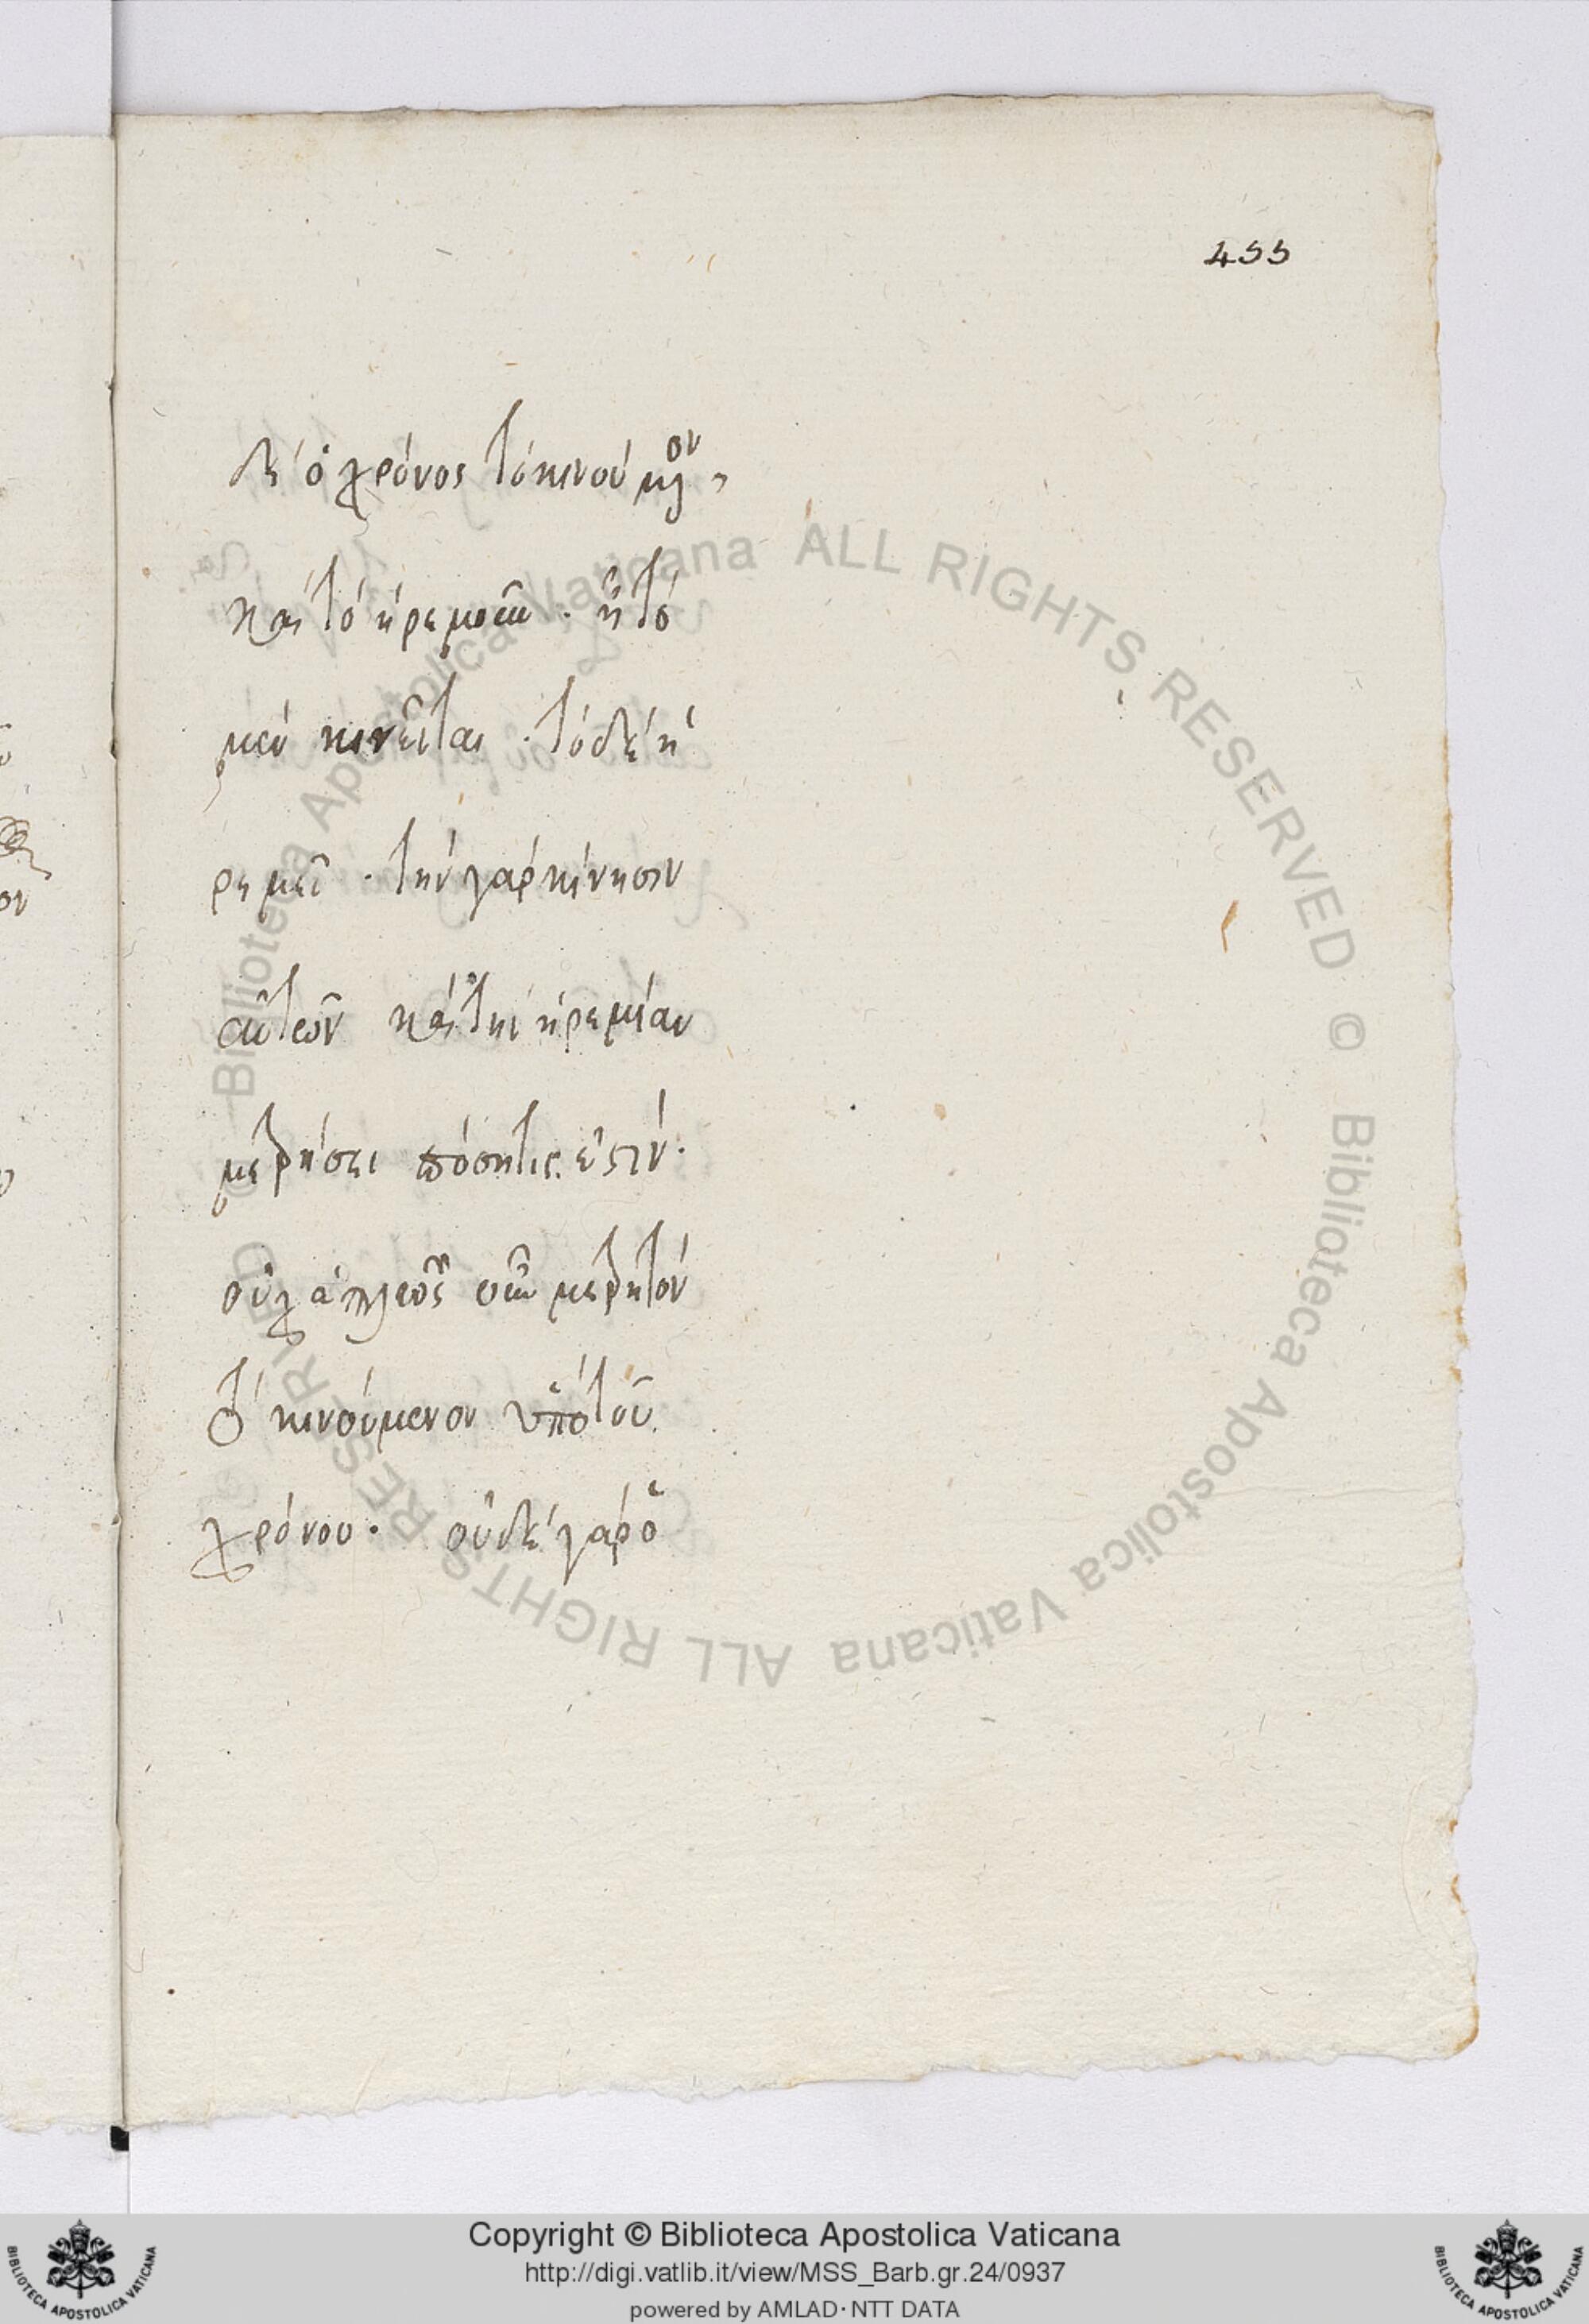 455
δὲ ὁ χρόνος τὸ κινούμενον,
καὶ τὸ ἠρεμοῦν · ᾗ τὸ
μὲν κινεῖται · τὸ δὲ ἠ
ρεμεῖ · τὴν γὰρ κίνησιν
αὐτῶν καὶ τὴν ἠρεμίαν
μετρήσει πόση τις ἐστίν ·
οὐχ ἁπλῶς οὖν μετρητὸν
τὸ κινούμενον ὑπὸ τοῦ
χρόνου · οὐδὲ γὰρ ὃ
Biblioteca Apostolica Vaticana ALL RIGHTS RESERVED © Biblioteca Apostolica Vaticana ALL RIGHTS RESERVED ©
Copyright © Biblioteca Apostolica Vaticana
http://digi.vatlib.it/view/MSS_Barb.gr.24/0937
powered by AMLAD · NTT DATA
BIBLIOTECA APOSTOLICA VATICANA
BIBLIOTECA APOSTOLICA VATICANA